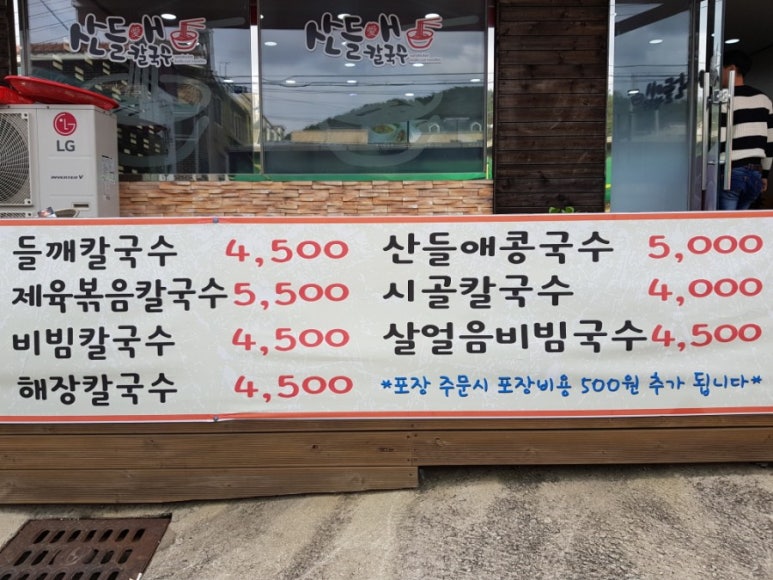 산들애
칼국수
산들애
칼국수
LG
INVERTER V
들깨칼국수 4,500
제육볶음칼국수 5,500
비빔칼국수 4,500
해장칼국수 4,500
산들애콩국수 5,000
시골칼국수 4,000
살얼음비빔국수 4,500
*포장 주문시 포장비용 500원 추가 됩니다*